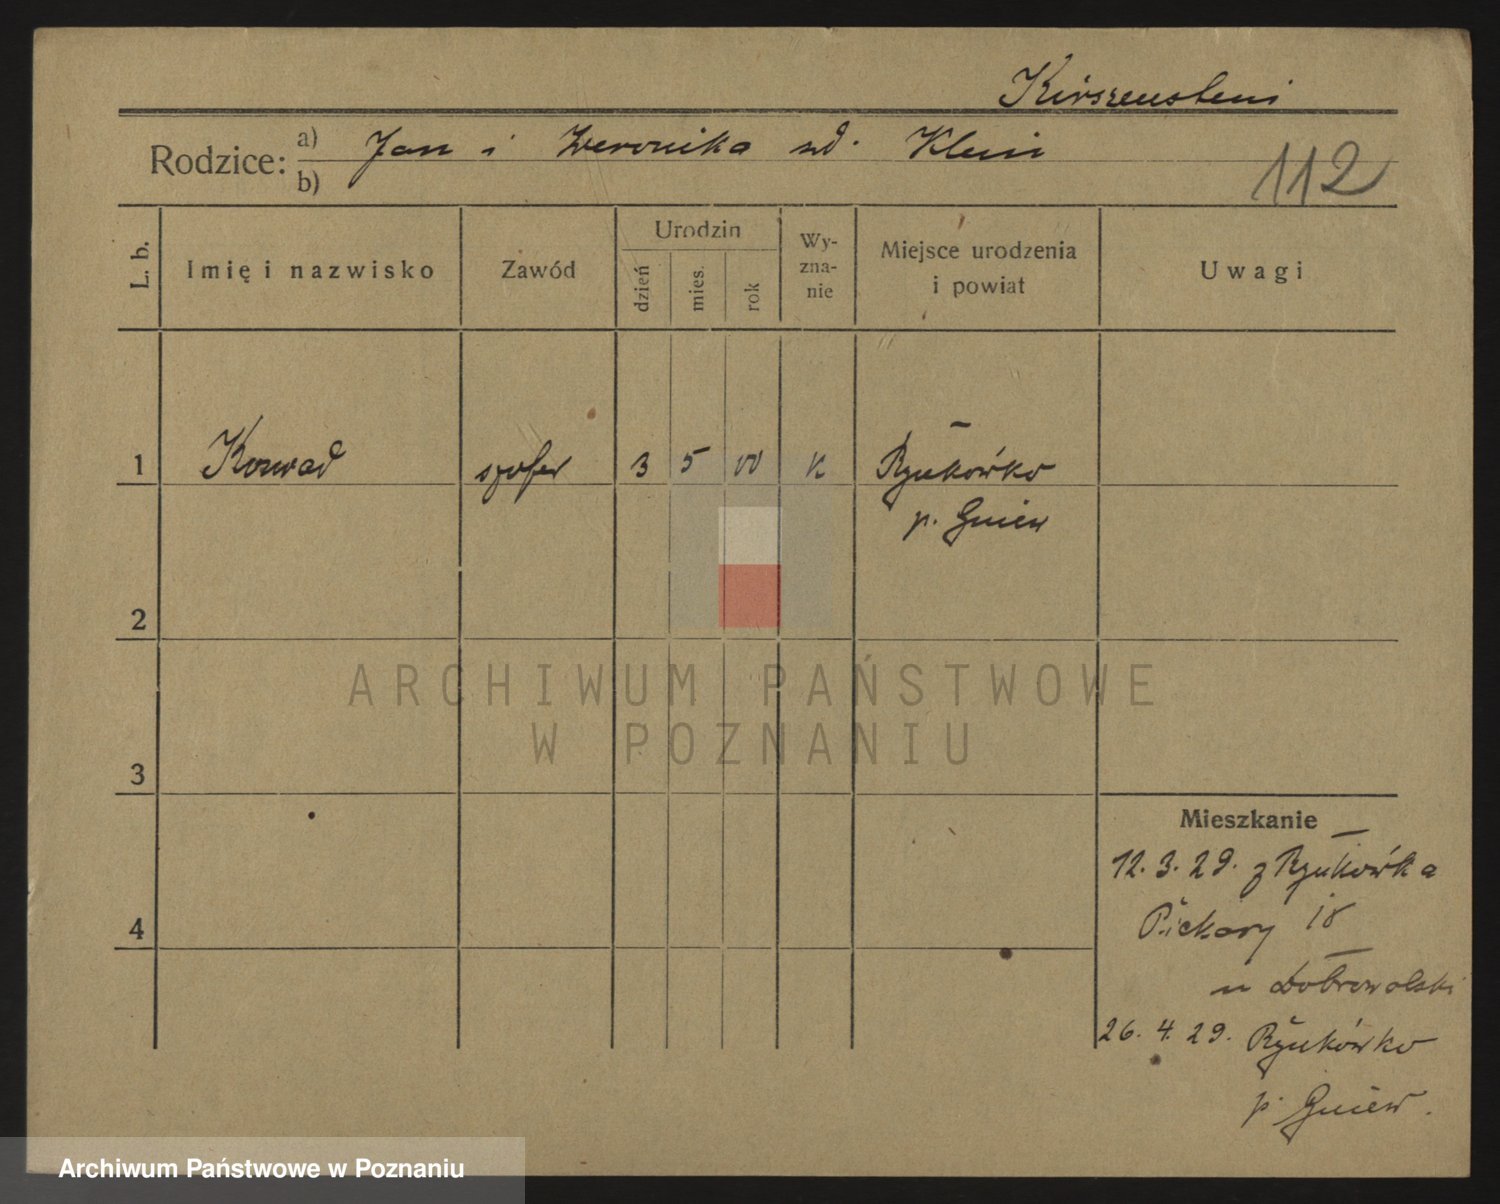 Kirszenstein
Rodzice: a) Jan i Weronika zd. Klein
b)
112
L. b.
Imię i nazwisko
Zawód
Urodzin
dzień
mies.
rok
Wy-
zna-
nie
Miejsce urodzenia
i powiat
Uwagi
1 Konrad szofer 3 5 00 K Rzukówko
p. Gniew
2
3
4
Mieszkanie
12. 3. 29. z Rzukówka
Piekary 18
u Dobrowolski
26. 4. 29. Rzukówko
p. Gniew.
ARCHIWUM PAŃSTWOWE
W POZNANIU
Archiwum Państwowe w Poznaniu